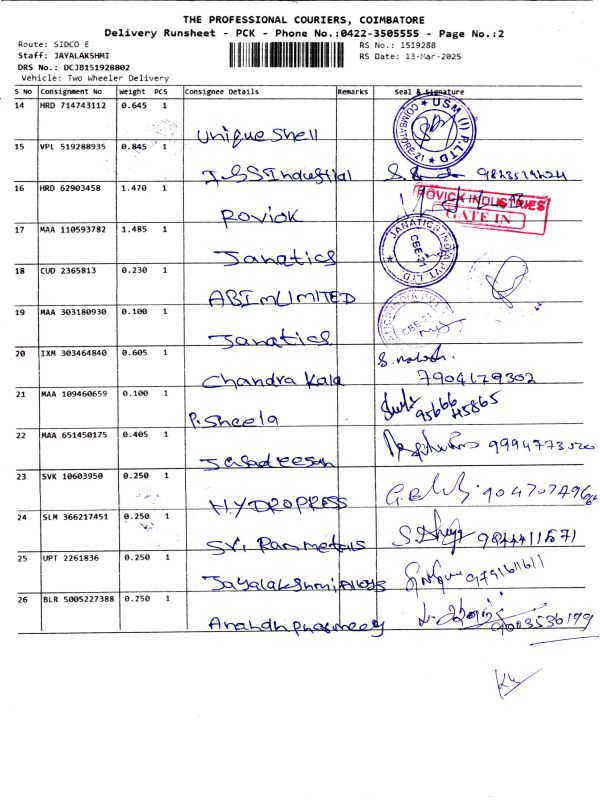 THE PROFESSIONAL COURIERS, COIMBATORE
Delivery Runsheet - PCK - Phone No.:0422-3505555 - Page No.:2
Route: SIDCO E RS No.: 1519288
Staff: JAYALAKSHMI RS Date: 13-Mar-2025
DRS No.: DCJB151928802
Vehicle: Two Wheeler Delivery
S No Consignment No Weight PCS Consignee Details Remarks Seal & Signature
14 HRD 714743112 0.645 1 Unique Shell USM (I) P.LTD COIMBATORE-21
15 VPL 519288935 0.845 1 Industrial
16 HRD 62903458 1.470 1 ROVICK INDUSTRIES
GATE IN
17 MAA 110593782 1.485 1 Janatics JANATICS INDIA PVT. LTD. CBE-21
18 CUD 2365813 0.230 1 LIMITED
19 MAA 303180930 0.100 1 Janatics CBE-21
20 IXM 303464840 0.605 1 Chandra Kala 7904179302
21 MAA 109460659 0.100 1 P. Sheela 95666 45865
22 MAA 651450175 0.405 1
23 SVK 10603950 0.250 1 HYDROPRESS
24 SLM 366217451 0.250 1 Sri Ram metals
25 UPT 2261836 0.250 1 Jayalakshmi Alloys 9791611611
26 BLR 5005227388 0.250 1 9003536199